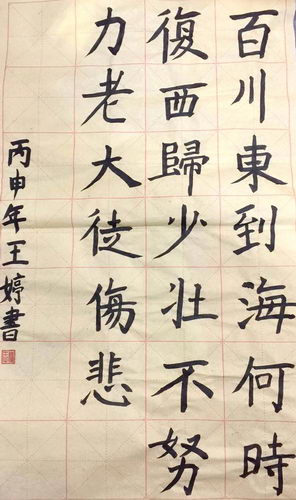 百川東到海何時
復西歸少壯不努
力老大徒傷悲
丙申年王婷書